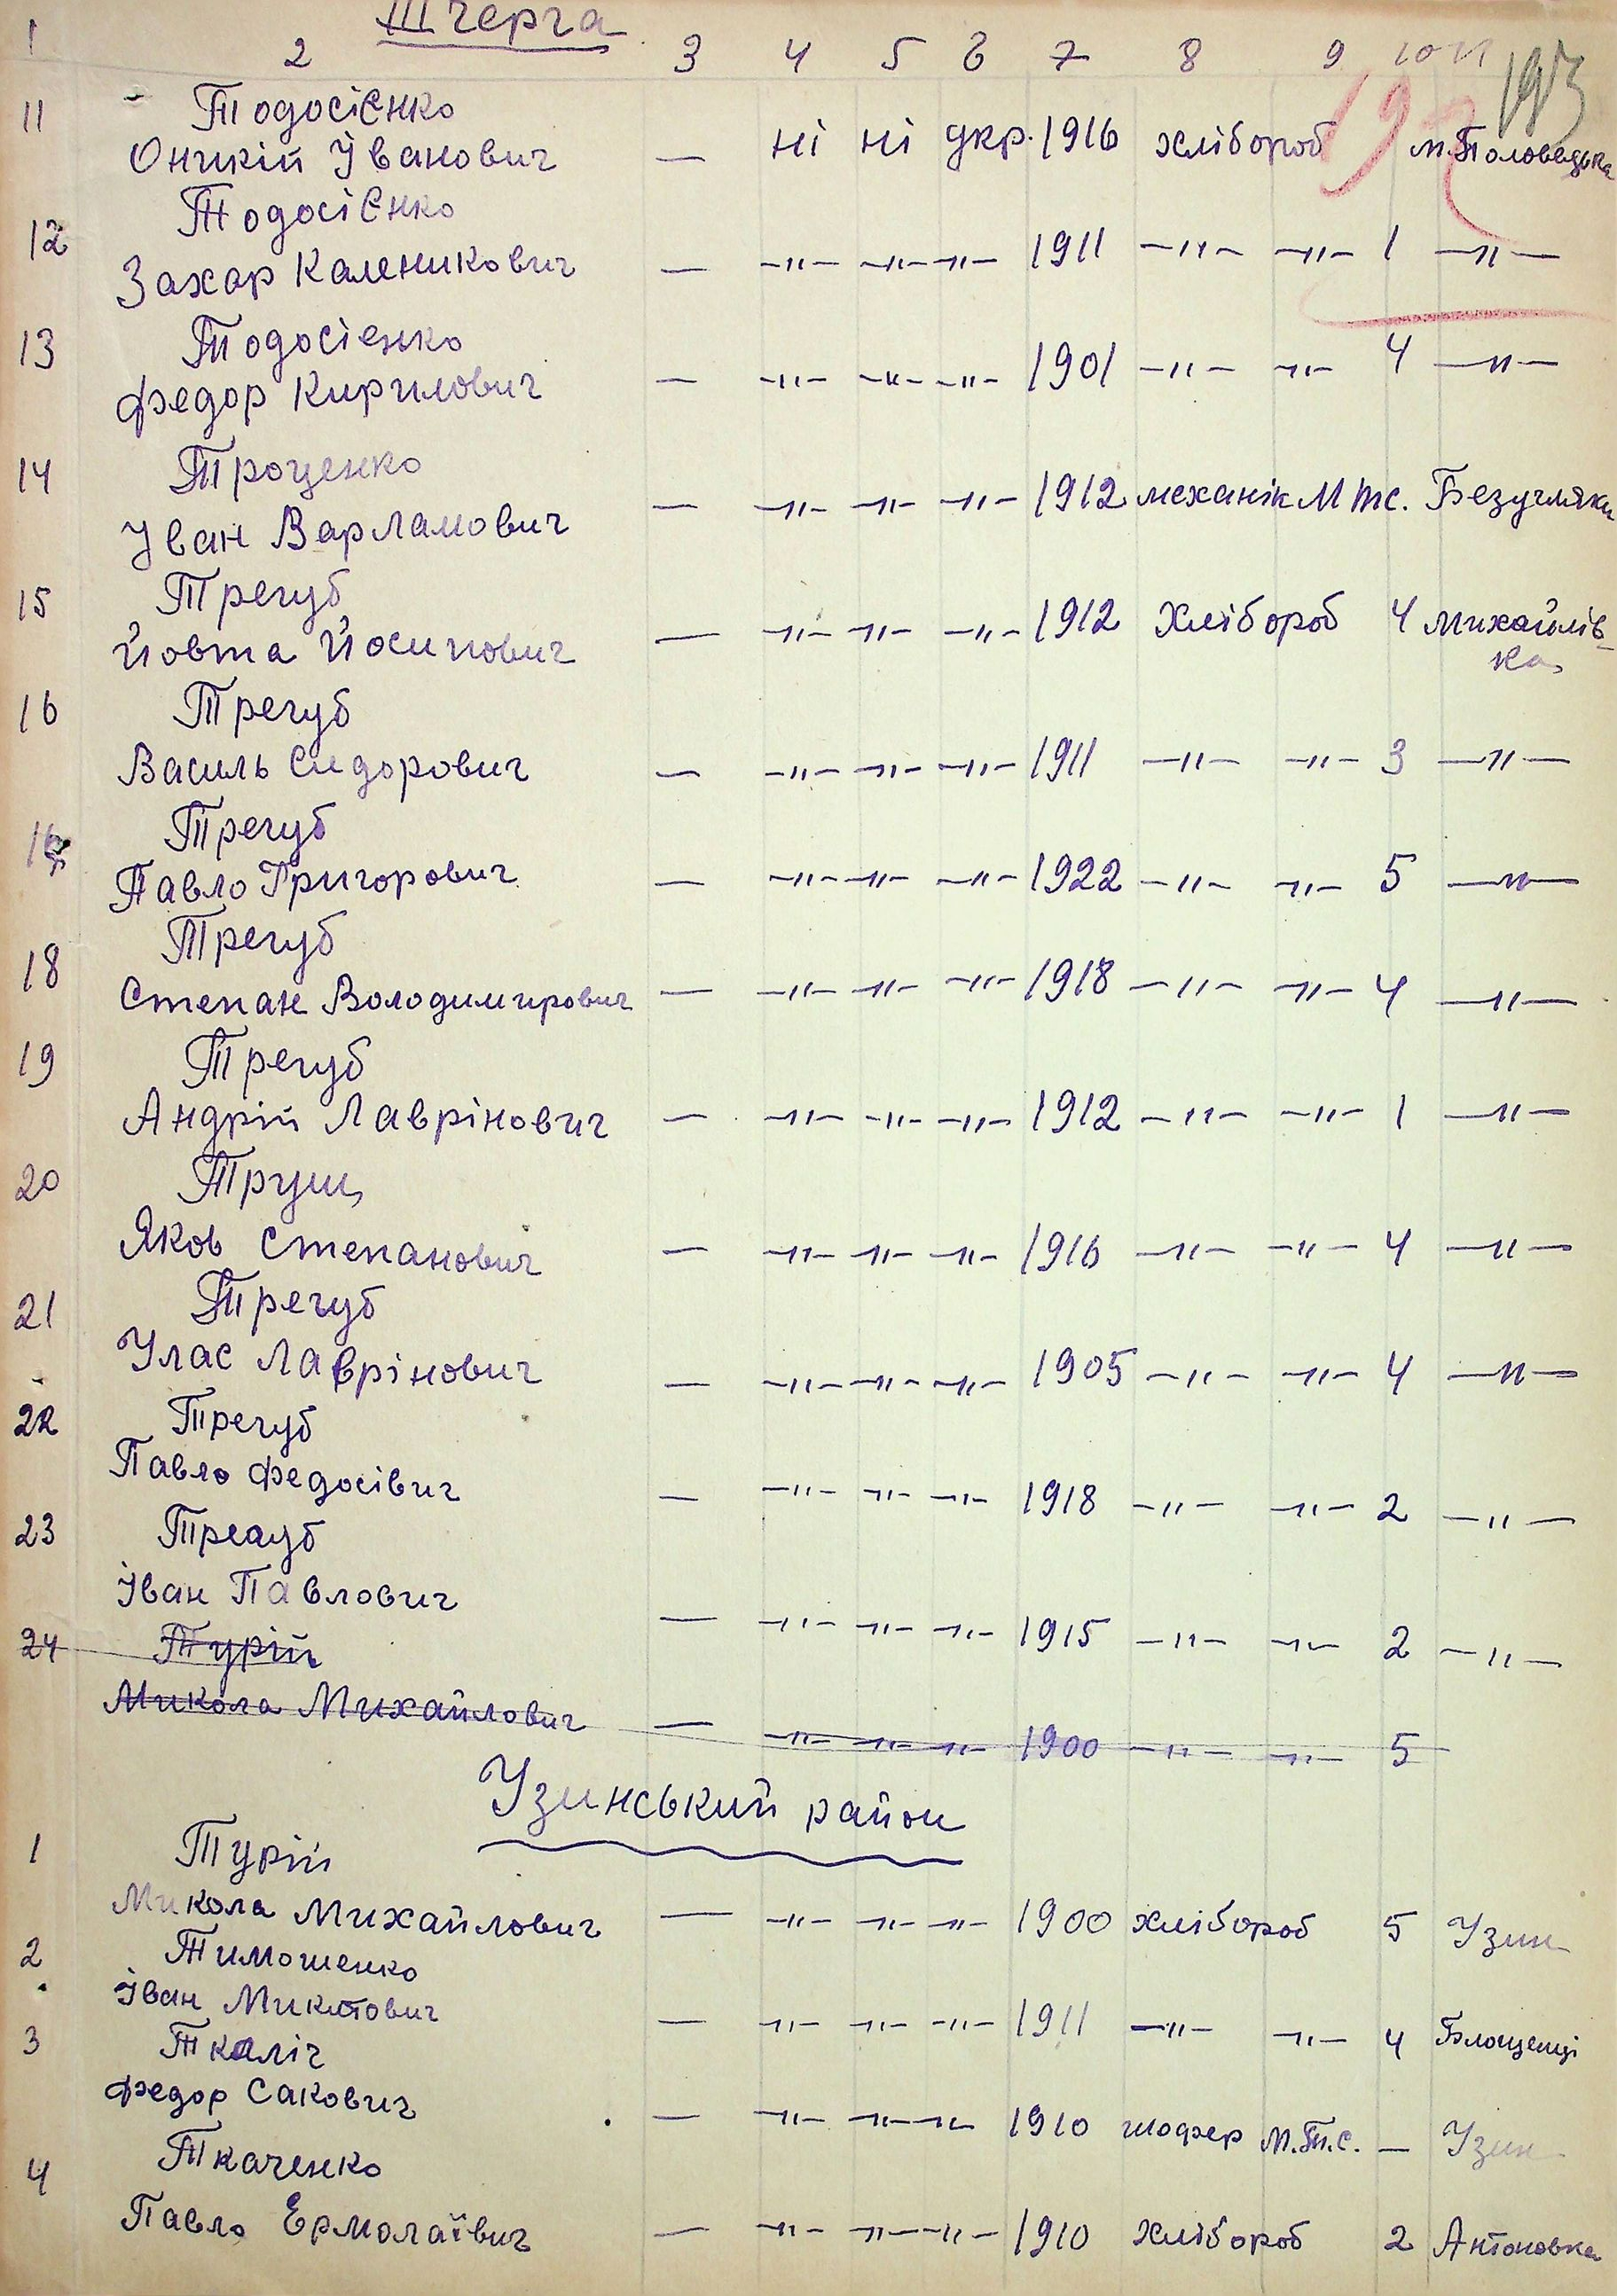 III черга
1 2 3 4 5 6 7 8 9 10 11
193
11 Тодосієнко
Оникій Іванович — ні ні укр. 1916 хлібороб м. Половецька
12 Тодосієнко
Захар Каленикович — —"— —"— —"— 1911 —"— —"— 1 —"—
13 Тодосієнко
Федор Кирилович — —"— —"— —"— 1901 —"— —"— 4 —"—
14 Троценко
Іван Варламович — —"— —"— —"— 1912 механік МТС. Безугляки
15 Трегуб
Йовта Йосипович — —"— —"— —"— 1912 Хлібороб 4 Михайлів-
ка
16 Трегуб
Василь Сидорович — —"— —"— —"— 1911 —"— —"— 3 —"—
Трегуб
Павло Григорович — —"— —"— —"— 1922 —"— —"— 5 —"—
18 Трегуб
Степан Володимирович — —"— —"— —"— 1918 —"— —"— 4 —"—
19 Трегуб
Андрій Лаврінович — —"— —"— —"— 1912 —"— —"— 1 —"—
20 Трущ
Яков Степанович — —"— —"— —"— 1916 —"— —"— 4 —"—
21 Трегуб
Улас Лаврінович — —"— —"— —"— 1905 —"— —"— 4 —"—
22 Трегуб
Павло Федосівич — —"— —"— —"— 1918 —"— —"— 2 —"—
23 Трегуб
Іван Павлович — —"— —"— —"— 1915 —"— —"— 2 —"—
24 Турій
Микола Михайлович — —"— —"— —"— 1900 —"— —"— 5
Узинський район
1 Турій
Микола Михайлович — —"— —"— —"— 1900 хлібороб 5 Узин
2 Тимошенко
Іван Микитович — —"— —"— —"— 1911 —"— —"— 4 Блощенці
3 Ткаліч
Федор Сакович — —"— —"— —"— 1910 шофер М.Т.С. — Узин
4 Ткаченко
Павло Ермолаївич — —"— —"— —"— 1910 Хлібороб 2 Антоновка